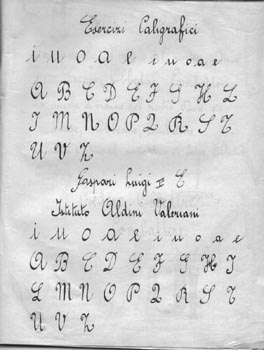 Esercizi Caligrafici
i u o a e i u o a e
A B C D E F G H L
I M N O P Q R S T
U V Z
Gaspari Luigi II C
Istituto Aldini Valeriani
i u o a e i u o a e
A B C D E F G H I
L M N O P Q R S T
U V Z